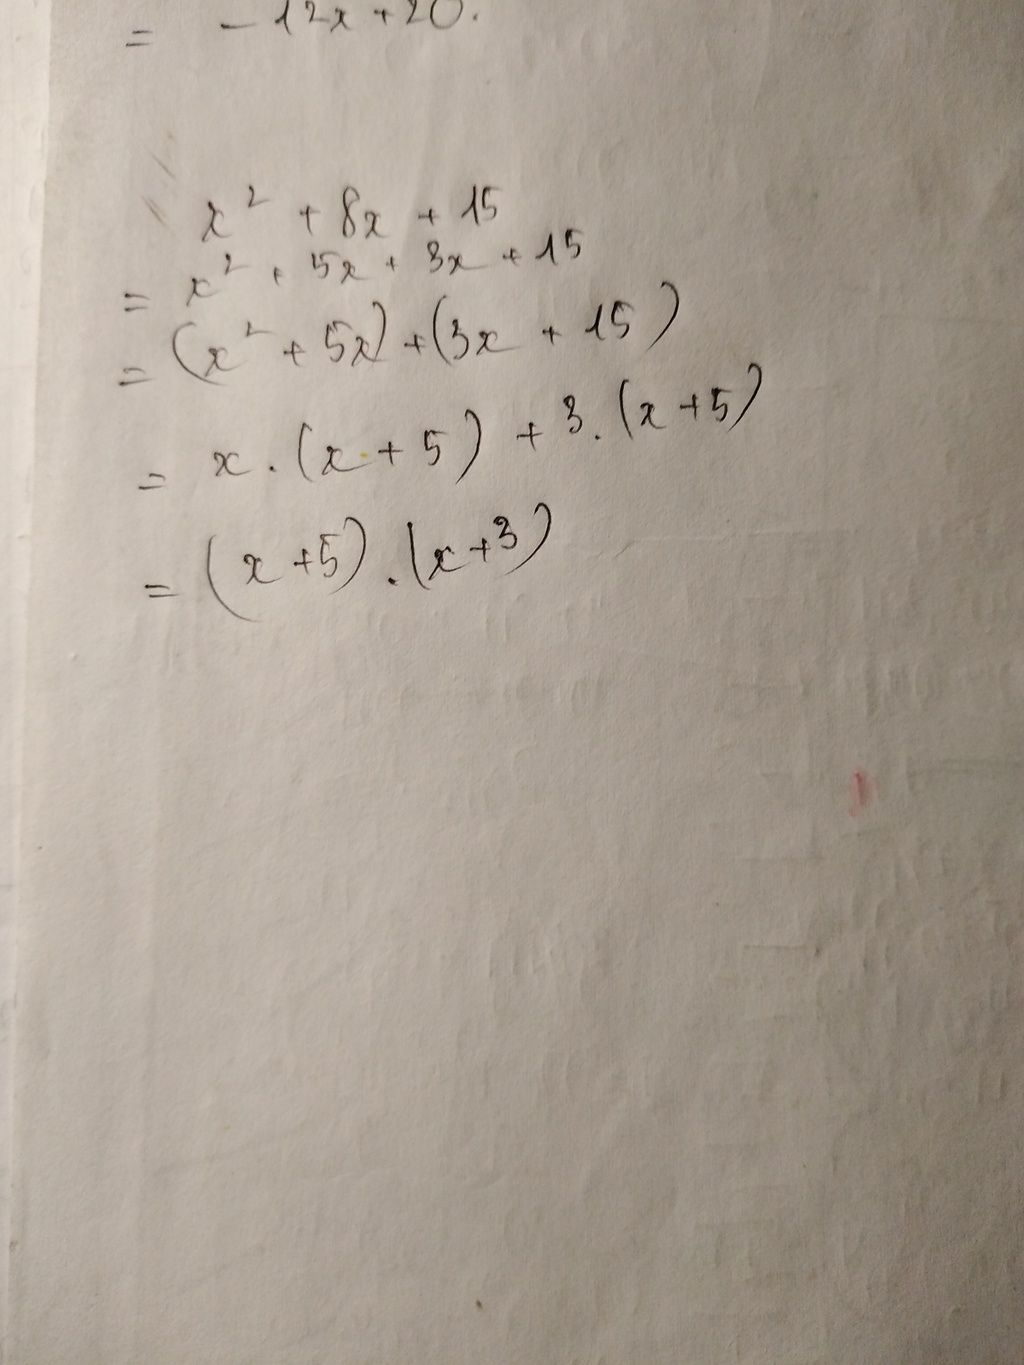 = -12x+20.
x² + 8x + 15
= x² + 5x + 3x + 15
= (x² + 5x) + (3x + 15)
= x . (x + 5) + 3. (x+5)
= (x+5) . (x+3)